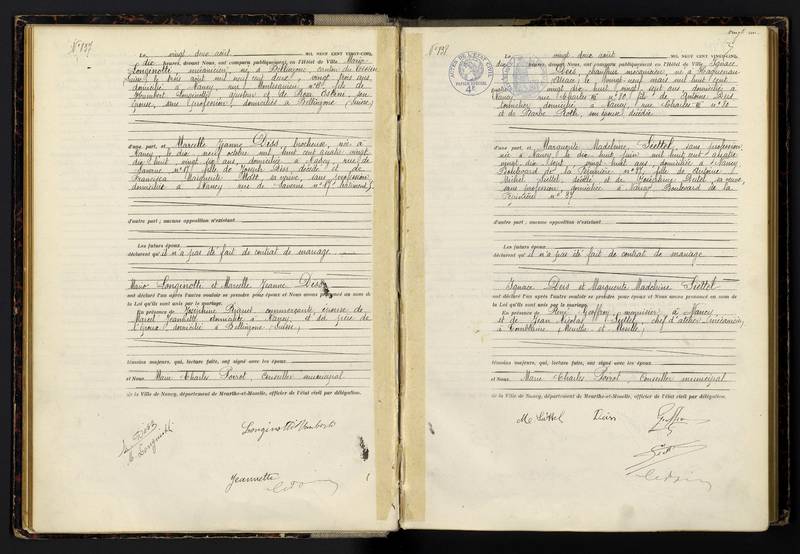 N° 137
Le vingt deux août MIL NEUF CENT VINGT-CINQ,
dix heures, devant Nous, ont comparu publiquement en l'Hôtel de Ville Mario
Longinotti, mécanicien, né à Bellinzone, canton du Tessin
Suisse le trois août mil neuf cent deux, vingt trois ans
domicilié à Nancy rue n° fils de
Humbert Longinotti, et de Rosa son
épouse, sans profession, domiciliés à Bellinzone (Suisse)
d'une part, et Marcelle Jeanne Dess brocheuse, née à
Nancy le dix neuf octobre mil huit cent quatre vingt
dix huit, vingt six ans, domiciliée à Nancy, rue de
Saverne n° 18 fille de Joseph Dess décédé et de
Francisca Marguerite sa veuve, sans profession
domiciliée à Nancy rue de Saverne n°
d'autre part ; aucune opposition n'existant
Les futurs époux
déclarent qu'il n'a pas été fait de contrat de mariage
Mario Longinotti et Marcelle Jeanne Dess
ont déclaré l'un après l'autre vouloir se prendre pour époux et Nous avons prononcé au nom de
la Loi qu'ils sont unis par le mariage.
En présence de Joséphine commerçante, épouse de
Marcel Jeannette domiciliée à Nancy, et du père de
l'époux domicilié à Bellinzone Suisse,
témoins majeurs, qui, lecture faite, ont signé avec les époux
et Nous, Marie Charles Poirot, Conseiller municipal
de la Ville de Nancy, département de Meurthe-et-Moselle, officier de l'état civil par délégation.
Dess
M. Longinotti
Longinotti Humbert
Jeannette
vingt un
N° 138
Le vingt deux août MIL NEUF CENT VINGT-CINQ,
dix heures, devant Nous, ont comparu publiquement en l'Hôtel de Ville Ignace
Deis, chauffeur mécanicien, né à Haguenau
Alsace, le vingt neuf mars mil huit cent
quatre vingt dix huit, vingt sept ans, domicilié à
Nancy, rue Charles III n° 30 fils de Antoine Deis,
tonnelier, domicilié à Nancy, rue Charles III n° 30
et de Barbe Roth, son épouse décédée
d'une part, et Marguerite Madeleine Siettel, sans profession
née à Nancy le dix huit juin mil huit cent quatre
vingt dix sept, vingt huit ans, domiciliée à Nancy
Boulevard de la Pépinière n° 37 fille de Antoine
Michel Siettel, décédé, et de sa veuve,
sans profession, domiciliée à Nancy Boulevard de la
Pépinière n° 37
d'autre part ; aucune opposition n'existant
Les futurs époux
déclarent qu'il n'a pas été fait de contrat de mariage
Ignace Deis et Marguerite Madeleine Siettel
ont déclaré l'un après l'autre vouloir se prendre pour époux et Nous avons prononcé au nom de
la Loi qu'ils sont unis par le mariage.
En présence de René Geoffroy, magasinier, à Nancy
et de Jean Nicolas Siettel, chef d'atelier mécanicien,
à Tomblaine (Meurthe et Moselle),
témoins majeurs, qui, lecture faite, ont signé avec les époux
et Nous, Marie Charles Poirot, Conseiller municipal
de la Ville de Nancy, département de Meurthe-et-Moselle, officier de l'état civil par délégation.
M. Siettel